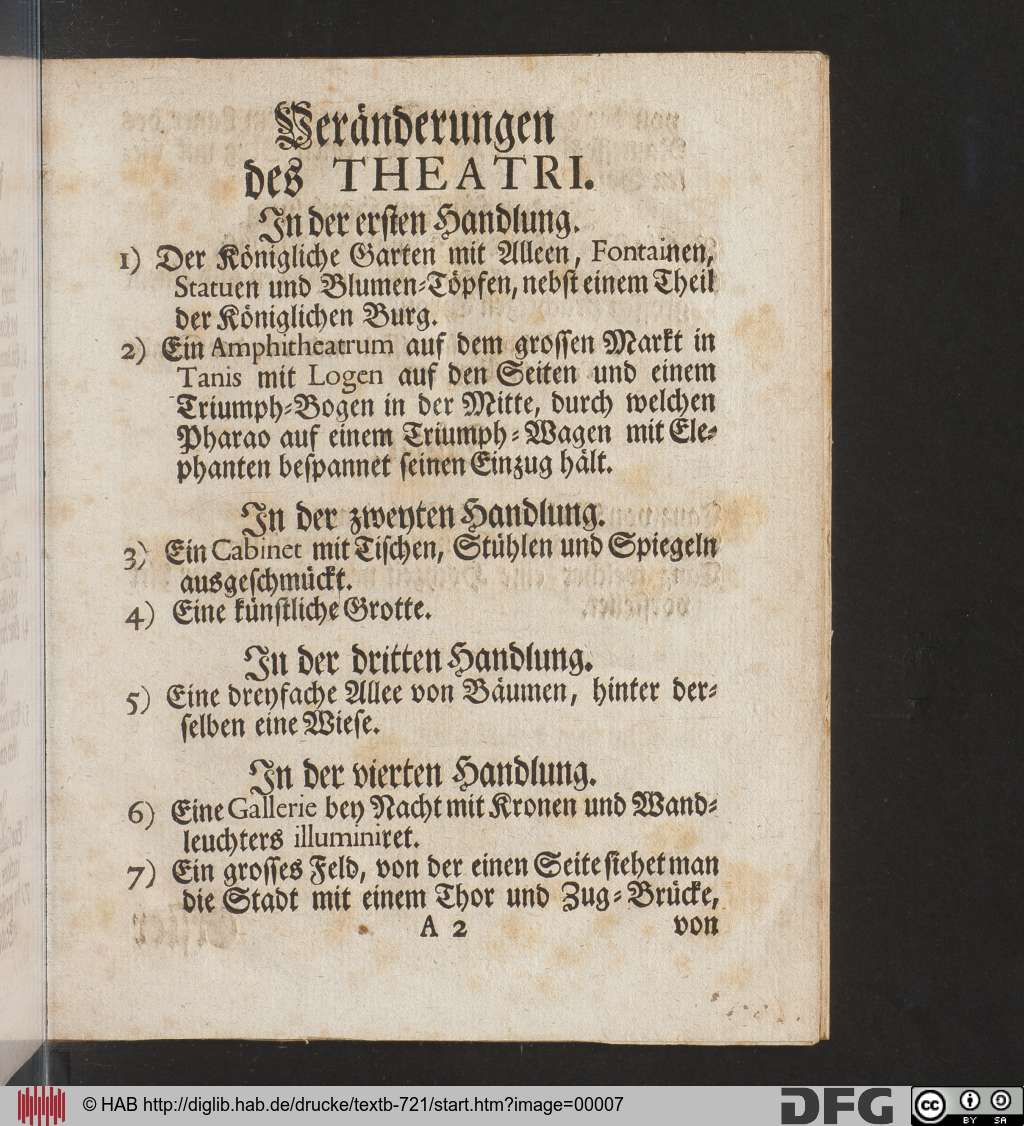 Veränderungen
des THEATRI.
In der ersten Handlung.
1) Der Königliche Garten mit Alleen, Fontainen,
Statuen und Blumen-Töpfen, nebst einem Theil
der Königlichen Burg.
2) Ein Amphitheatrum auf dem grossen Markt in
Tanis mit Logen auf den Seiten und einem
Triumph-Bogen in der Mitte, durch welchen
Pharao auf einem Triumph-Wagen mit Ele-
phanten bespannet seinen Einzug hält.
In der zweyten Handlung.
3) Ein Cabinet mit Tischen, Stühlen und Spiegeln
ausgeschmückt.
4) Eine künstliche Grotte.
In der dritten Handlung.
5) Eine dreyfache Allee von Bäumen, hinter der-
selben eine Wiese.
In der vierten Handlung.
6) Eine Gallerie bey Nacht mit Kronen und Wand-
leuchters illuminiret.
7) Ein grosses Feld, von der einen Seite siehet man
die Stadt mit einem Thor und Zug-Brücke,
A 2 von
© HAB http://diglib.hab.de/drucke/textb-721/start.htm?image=00007
DFG
cc BY SA